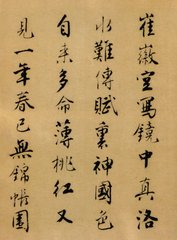 崔徽空寫鏡中真洛
水難傳賦裏神國色
自来多命薄桃紅又
見一年春已無錦帳圍